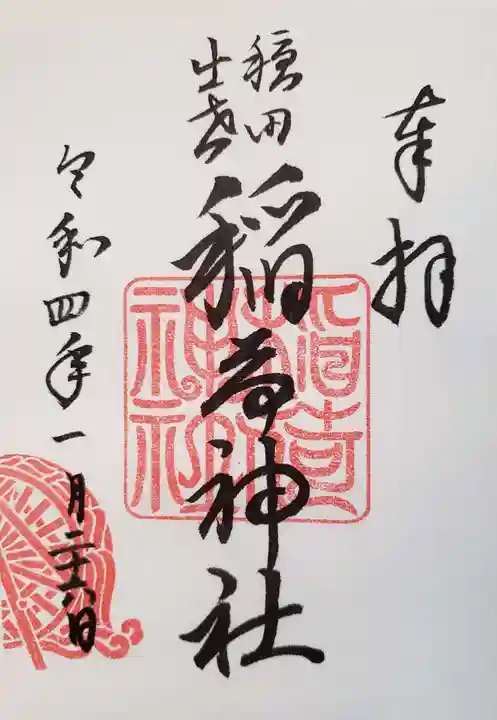 奉拝
田
出世
稲荷神社
令和四年一月二十六日
神社